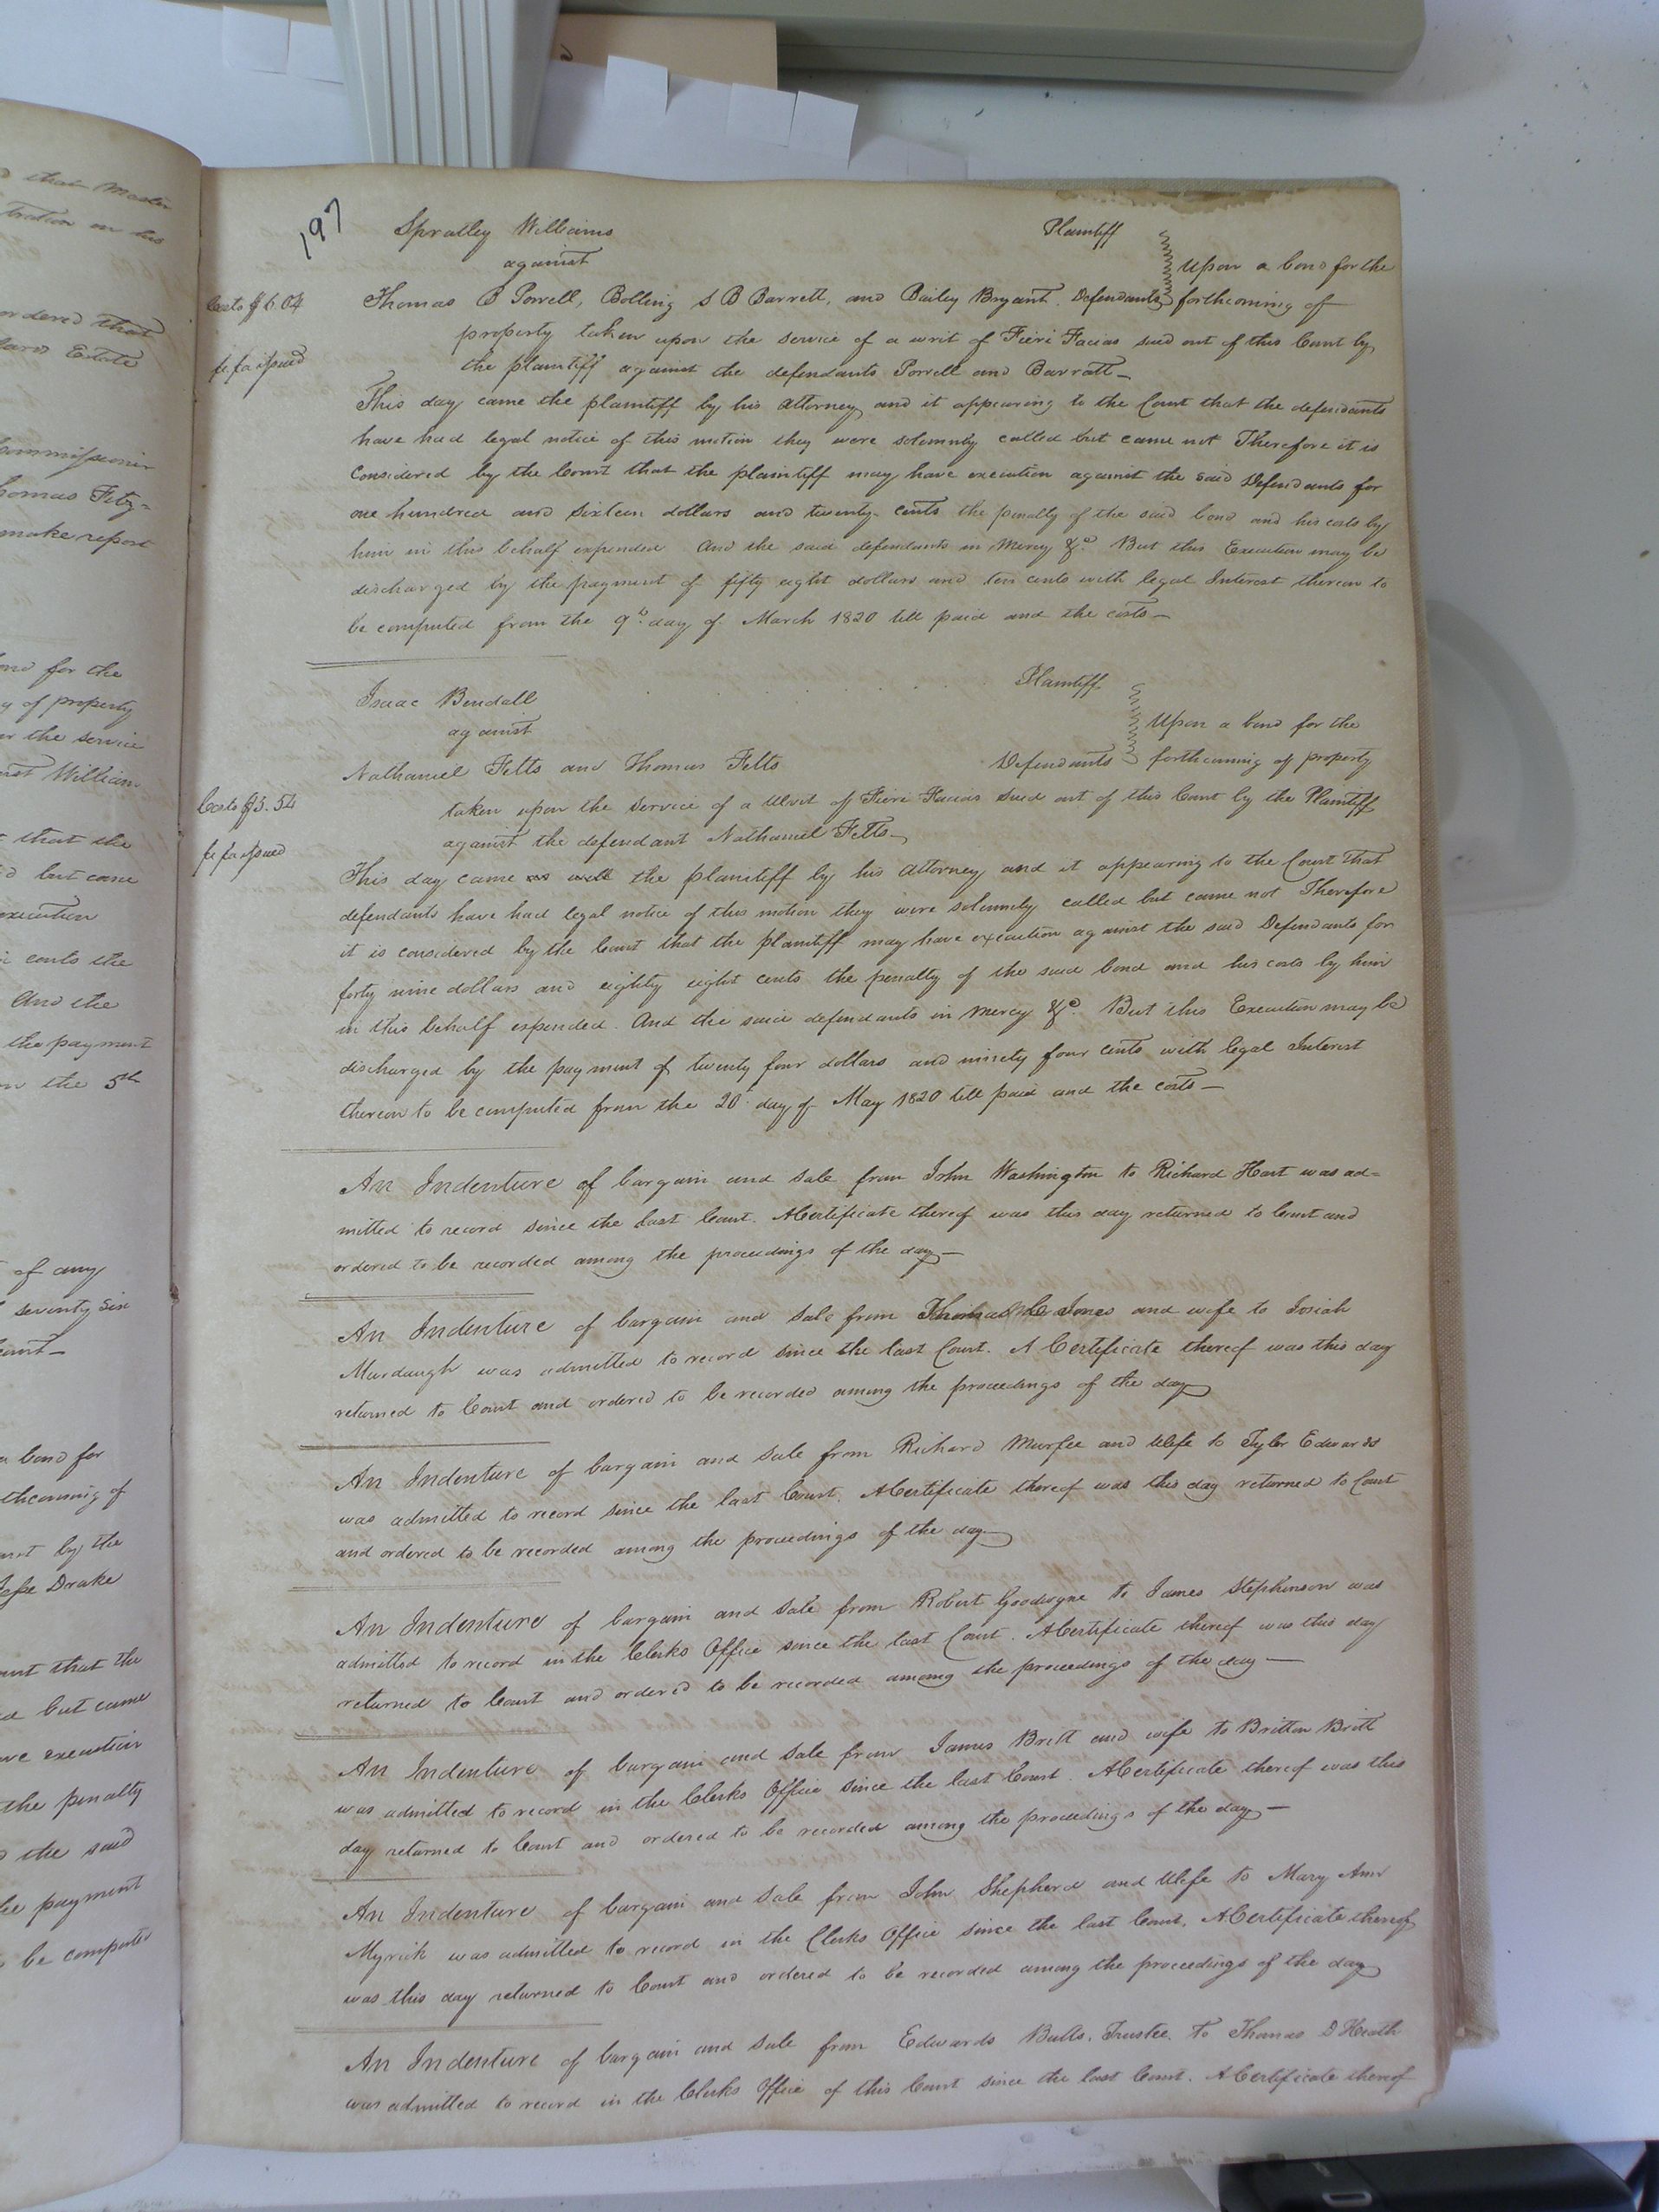 d that Master
tration on his
ordered that
lard Estate
Commissioner
homas Fitz=
make report
ond for the
g of property
n the service
nst William
t that the
d but came
execution
n cents the
And the
the payment
on the 5th
of any
seventy six
Court—
a bond for
thcoming of
urt by the
Jesse Drake
urt that the
d but came
ve execution
the penalty
d the said
he payment
be computed
197
Spratley Williams Plaintiff
against
Upon a bond for the
Costs $6.04
Thomas B Porrell, Bolling S B Barrett, and Bailey Bryant. Defendants forthcoming of
property taken upon the service of a writ of Fieri Facias sued out of this Court by
fi fa issued
the plaintiff against the defendants Porrell and Barratt—
This day came the plaintiff by his attorney and it appearing to the Court that the defendants
have had legal notice of this motion they were solemnly called but came not Therefore it is
Considered by the Court that the plaintiff may have execution against the said Defendants for
one hundred and Sixteen dollars and twenty- cents the penalty of the said bond and his costs by
him in this behalf expended And the said defendants in Mercy &c. But this Execution may be
discharged by the payment of fifty eight dollars and ten cents with legal Interest thereon to
be computed from the 9th day of March 1820 till paid and the costs—
Isaac Bendall Plaintiff
against
Upon a bond for the
Nathaniel Felts and Thomas Felts Defendants forthcoming of property
Costs $5.54
taken upon the service of a Writ of Fieri Facias Sued out of this Court by the Plaintiff
against the defendant Nathaniel Felts—
fi fa issued
This day came as well the plaintiff by his attorney and it appearing to the Court that
defendants have had legal notice of this motion they were solemnly called but came not Therefore
it is considered by the Court that the plaintiff may have execution against the said Defendants for
forty nine dollars and eighty eight cents the penalty of the said bond and his costs by him
in this behalf expended. And the said defendants in Mercy &c. But this Execution may be
discharged by the payment of twenty four dollars and ninety four cents with legal Interest
thereon to be computed from the 20 day of May 1820 till paid and the costs—
An Indenture of bargain and sale from John Washington to Richard Hart was ad=
mitted to record since the last Court. A Certificate thereof was this day returned to Court and
ordered to be recorded among the proceedings of the day—
An Indenture of bargain and Sale from Jones and wife to Josiah
Murdaugh was admitted to record since the last Court. A Certificate thereof was this day
returned to Court and ordered to be recorded among the proceedings of the day
An Indenture of bargain and sale from Richard Murfee and Wife to Tyler Edwards
was admitted to record since the last Court. A Certificate thereof was this day returned to Court
and ordered to be recorded among the proceedings of the day—
An Indenture of bargain and Sale from Robert Goodwyne to James Stephenson was
admitted to record in the Clerks Office since the last Court. A Certificate thereof was this day
returned to Court and ordered to be recorded among the proceedings of the day—
An Indenture of bargain and Sale from James Britt and wife to Britton Britt
was admitted to record in the Clerks Office since the last Court. A Certificate thereof was this
day returned to Court and ordered to be recorded among the proceedings of the day—
An Indenture of bargain and Sale from John Shepherd and Wife to Mary Ann
Myrick was admitted to record in the Clerks Office since the last Court. A Certificate thereof
was this day returned to Court and ordered to be recorded among the proceedings of the day
An Indenture of bargain and Sale from Edwards Butts, Trustee. To Thomas D Heath
was admitted to record in the Clerks Office of this Court since the last Court. A Certificate thereof